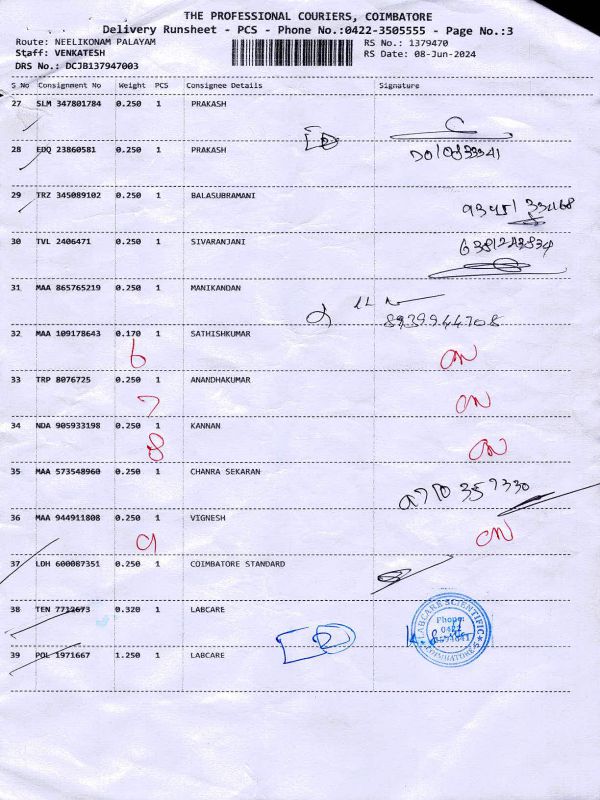 THE PROFESSIONAL COURIERS, COIMBATORE
Delivery Runsheet - PCS - Phone No.:0422-3505555 - Page No.:3
Route: NEELIKONAM PALAYAM RS No.: 1379470
Staff: VENKATESH RS Date: 08-Jun-2024
DRS No.: DCJB137947003
S No Consignment No Weight PCS Consignee Details Signature
27 SLM 347801784 0.250 1 PRAKASH
28 EDQ 23860581 0.250 1 PRAKASH
29 TRZ 345089102 0.250 1 BALASUBRAMANI
30 TVL 2406471 0.250 1 SIVARANJANI
31 MAA 865765219 0.250 1 MANIKANDAN
8939944708
32 MAA 109178643 0.170 1 SATHISHKUMAR
6 ON
33 TRP 8076725 0.250 1 ANANDHAKUMAR
7 ON
34 NDA 905933198 0.250 1 KANNAN
8 ON
35 MAA 573548960 0.250 1 CHANRA SEKARAN
9710357330
36 MAA 944911808 0.250 1 VIGNESH
9 ON
37 LDH 600087351 0.250 1 COIMBATORE STANDARD
38 TEN 7712673 0.320 1 LABCARE
LABCARE SCIENTIFIC
Phone:
0422
COIMBATORE-5
39 POL 1971667 1.250 1 LABCARE